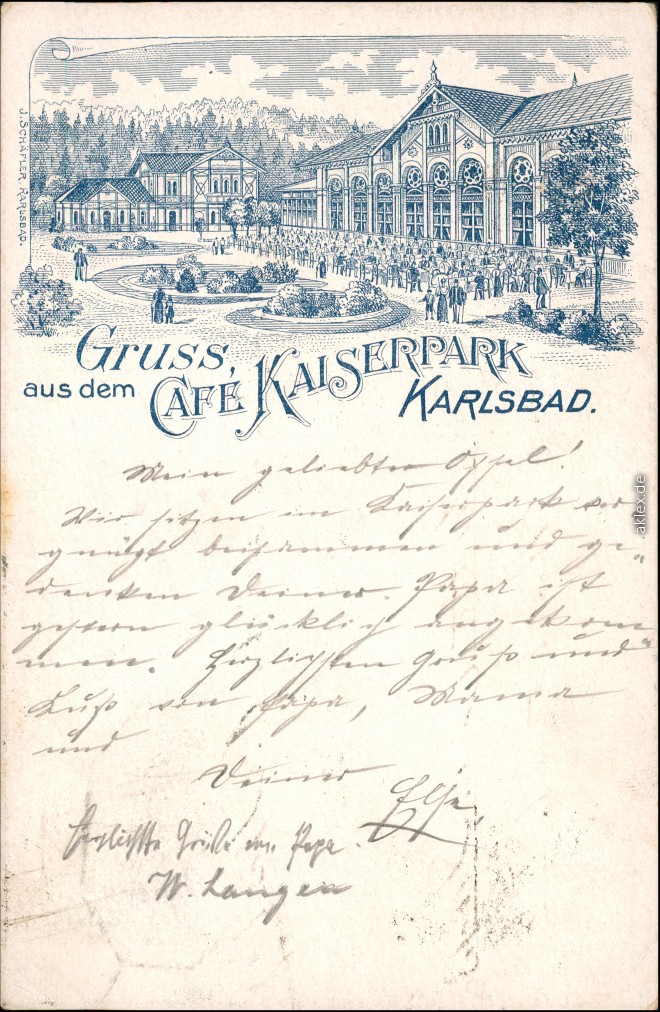 J. SCHÄFLER, KARLSBAD.
Gruss,
aus dem CAFÉ KAISERPARK
KARLSBAD.
aklex.de
Mein geliebter
Wir sitzen im Kaiserpark ver
gnügt beisammen und ge„
denken Deiner. Papa ist
gestern glücklich angekom
men. Herzlichsten Gruß und"
Kuß von Papa, Mama
und
Deiner
Else.
Herzlichste Grüße von Papa.
W. Langen